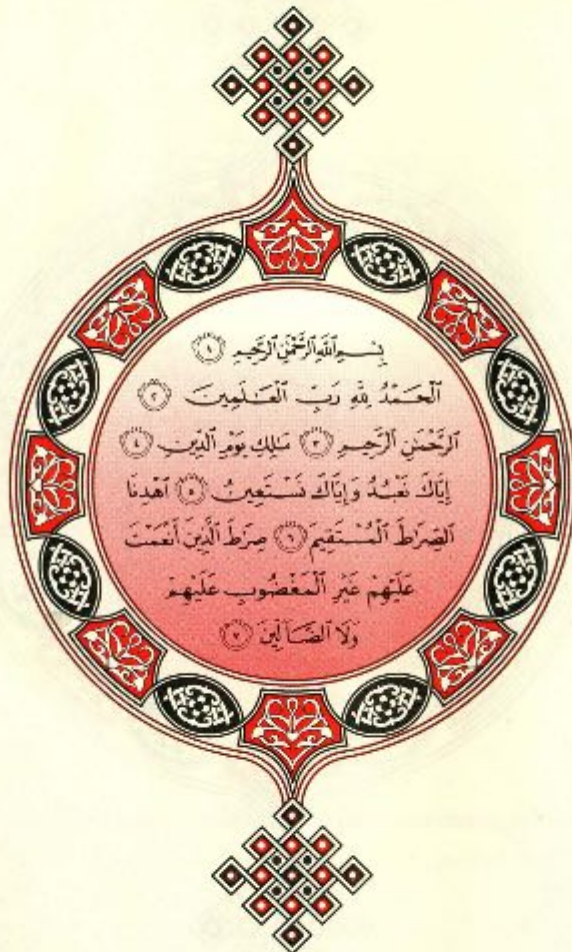 بِسْمِ اللَّهِ الرَّحْمَٰنِ الرَّحِيمِ ١
الْحَمْدُ لِلَّهِ رَبِّ الْعَـٰلَمِينَ ٢
الرَّحْمَٰنِ الرَّحِيمِ ٣ مَـٰلِكِ يَوْمِ الدِّينِ ٤
إِيَّاكَ نَعْبُدُ وَإِيَّاكَ نَسْتَعِينُ ٥ اهْدِنَا
الصِّرَٰطَ الْمُسْتَقِيمَ ٦ صِرَٰطَ الَّذِينَ أَنْعَمْتَ
عَلَيْهِمْ غَيْرِ الْمَغْضُوبِ عَلَيْهِمْ
وَلَا الضَّآلِّينَ ٧